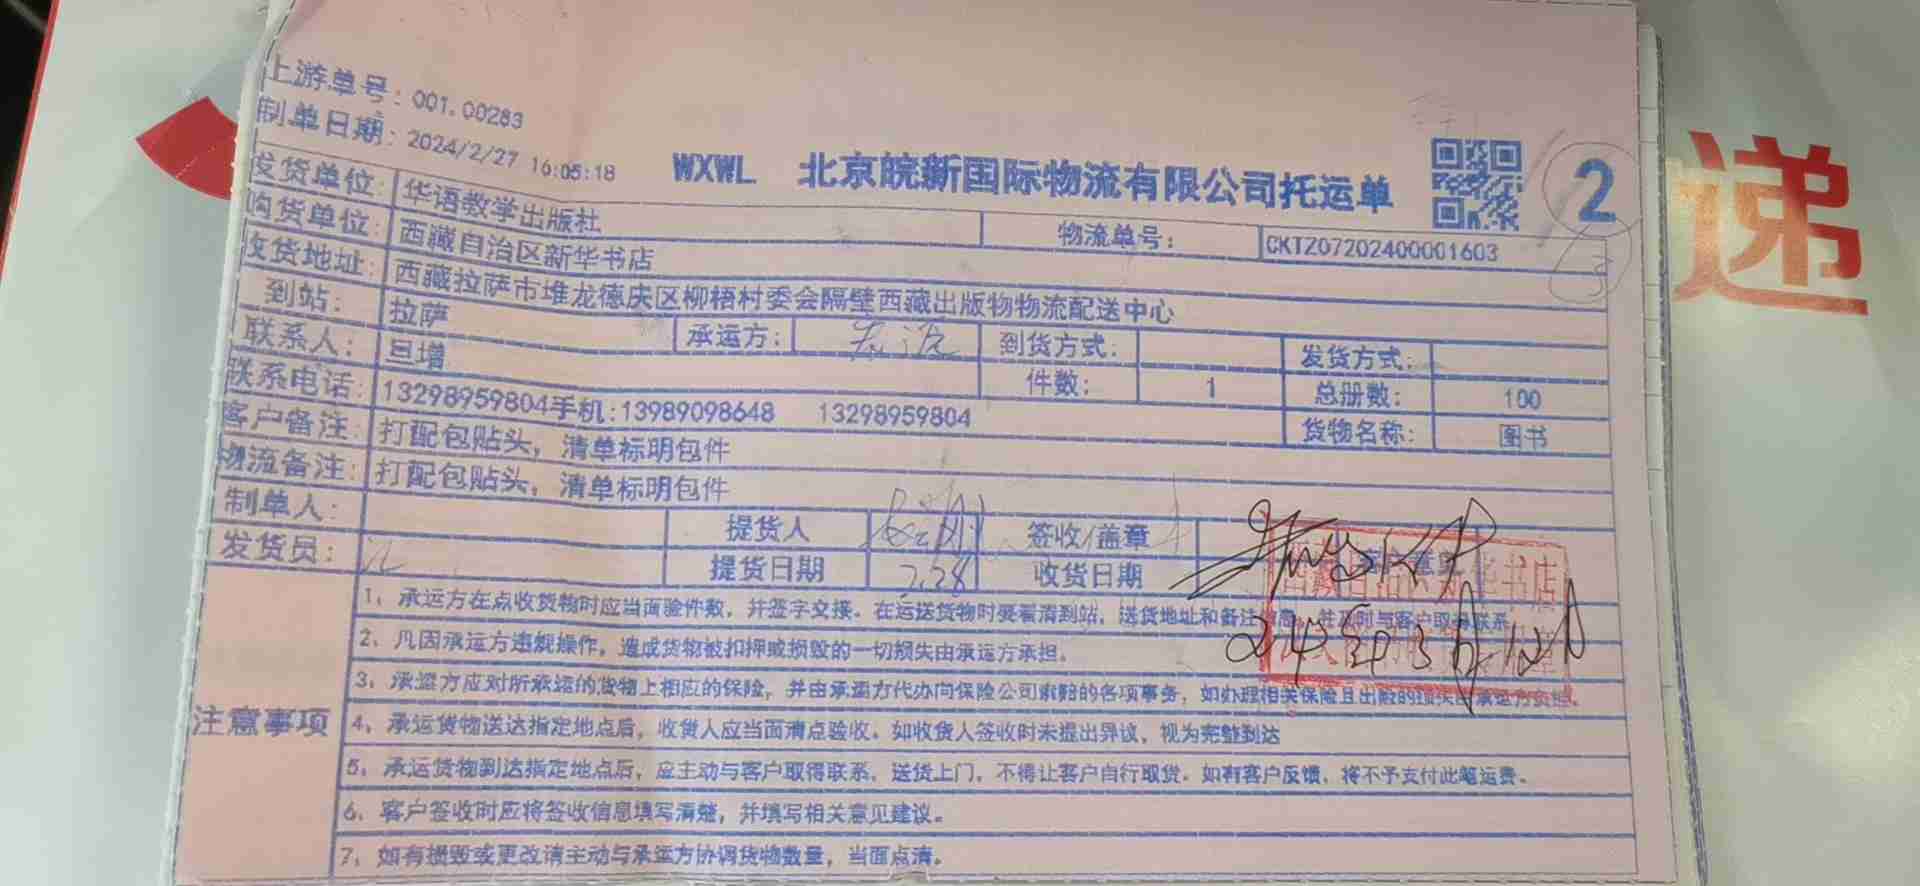 上游单号：001.00283
制单日期：2024/2/27 16:05:18
WXWL 北京皖新国际物流有限公司托运单
2
3
递
发货单位：华语教学出版社 物流单号：CKTZ07202400001603
购货单位：西藏自治区新华书店
收货地址：西藏拉萨市堆龙德庆区柳梧村委会隔壁西藏出版物物流配送中心
到站：拉萨 承运方： 到货方式： 发货方式：
联系人：旦增 件数：1 总册数：100
联系电话：13298959804手机：13989098648 13298959804 货物名称：图书
客户备注：打配包贴头，清单标明包件
物流备注：打配包贴头，清单标明包件
制单人： 提货人 签收/盖章
发货员： 提货日期 2.28 收货日期
注意事项
1、承运方在点收货物时应当面验件数，并签字交接。在运送货物时要看清到站，送货地址和备注信息，并及时与客户取得联系。
2、凡因承运方违规操作，造成货物被扣押或损毁的一切损失由承运方承担。
3、承运方应对所承运的货物上相应的保险，并由承运方代办向保险公司索赔的各项事务，如办理相关保险且出险的损失由承运方负担。
4、承运货物送达指定地点后，收货人应当面清点验收。如收货人签收时未提出异议，视为完整到达
5、承运货物到达指定地点后，应主动与客户取得联系，送货上门，不得让客户自行取货。如有客户反馈，将不予支付此笔运费。
6、客户签收时应将签收信息填写清楚，并填写相关意见建议。
7、如有损毁或更改请主动与承运方协调货物数量，当面点清。